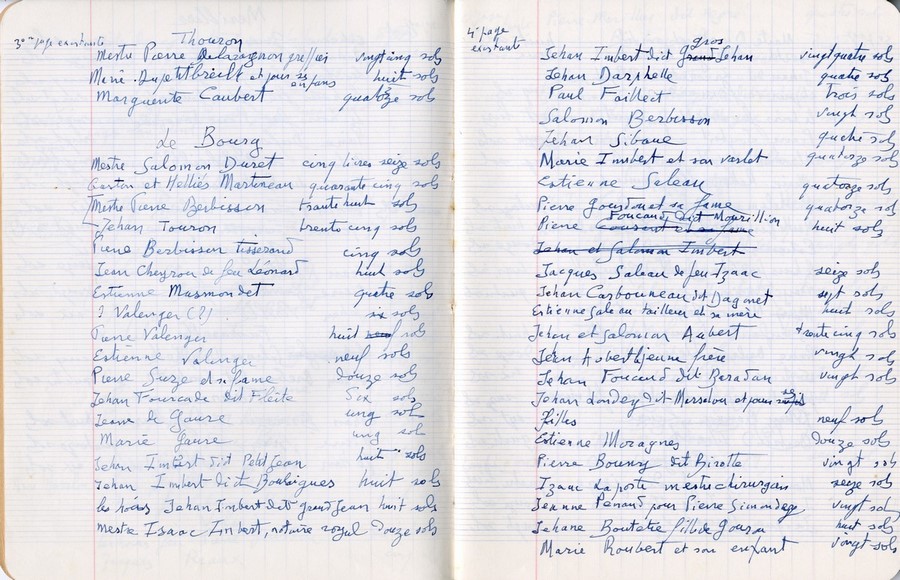 3eme page existante
Thouron
Mestre Pierre Delavagnon greffier vingt cinq sols
huit sols
et pour ses enfans
Marguerite Caubert quatorze sols
Le Bourg
Mestre Salomon Duret cinq livres seize sols
Gaston et Hellies Martineau quarante cinq sols
Mestre Pierre Berbisson trante huit sols
Jehan Touron trente cinq sols
Pierre Berbisson tisserand cinq sols
Jean Cheyrou de feu Léonard huit sols
Estienne Masmondet quatre sols
J Valenger (?) six sols
Pierre Valenger huit neuf sols
Estienne Valenger neuf sols
Pierre Suze et sa fame douze sols
Jehan Fourcade dit Fleite Six sols
Jeane de Gaure ung sol
Marie Gaure ung sol
Jehan Imbert dit Petit Jean huit sols
Jehan Imbert dit Boulsigues huit sols
les hoirs Jehan Imbert dit grand Jean huit sols
mestre Isaac Imbert, notaire royal douze sols
4e page existante
Jehan Imbert dit grand gros Jehan vingt quatre sols
Jehan Darphelle quatre sols
Paul Faillect trois sols
Salomon Berbisson vingt sols
Jehan Siboue quatre sols
Marie Imbert et son varlet quatorze sols
Estienne Saleau quatorze sols
Pierre Gourdon et sa fame quatorze sols
Pierre Foucaud dit Mourillion huit sols
Jehan et Salomon Imbert
Jacques Saleau de feu Izaac seize sols
Jehan Carbouneau dit Dagonet sept sols
Estienne Saleau tailleur et sa mère huit sols
Jehan et Salomon Aubert trente cinq sols
Jean Aubert le jeune frère vingt sols
Jehan Foucaud dit Baradan vingt sols
Jehan Londey dit Merselou et pour ses
filles neuf sols
Estienne Moragnes douze sols
Pierre Bouny dit Birotte vingt sols
Izaac Laporte mestre chirurgain seize sols
Jeanne Penaud pour Pierre Simondege vingt sols
Jehane Boutetre fille de Gourou huit sols
Marie Roubert et son enfant vingt sols